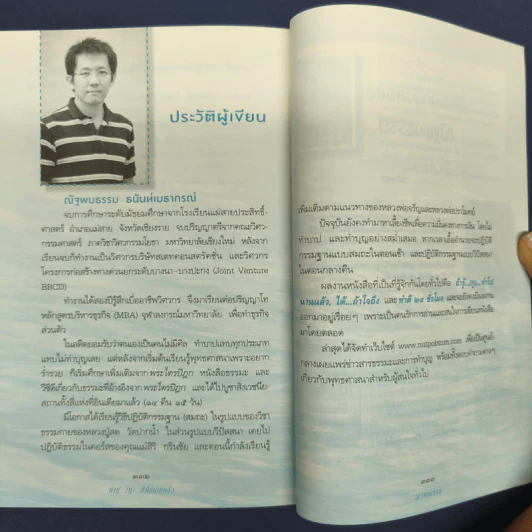 ประวัติผู้เขียน
ณัฐพบธรรม ธนันท์เมธาภรณ์
จบการศึกษาระดับมัธยมศึกษาจากโรงเรียนแม่สายประสิทธิ์-
ศาสตร์ อำเภอแม่สาย จังหวัดเชียงราย จบปริญญาตรีจากคณะวิศวะ-
กรรมศาสตร์ ภาควิชาวิศวกรรมโยธา มหาวิทยาลัยเชียงใหม่ หลังจาก
เรียนจบก็ทำงานเป็นวิศวกรบริษัทเสตทคอนสตรัคชั่น และวิศวกร
โครงการก่อสร้างทางด่วนยกระดับบางนา-บางปะกง (Joint Venture
BBCD)
ทำงานได้สองปีรู้สึกเบื่ออาชีพวิศวกร จึงมาเรียนต่อปริญญาโท
หลักสูตรบริหารธุรกิจ (MBA) จุฬาลงกรณ์มหาวิทยาลัย เพื่อทำธุรกิจ
ส่วนตัว
ในอดีตยอมรับว่าตนเองเป็นคนไม่มีศีล ทำบาปแทบทุกประเภท
แทบไม่ทำบุญเลย แต่หลังจากเริ่มต้นเรียนรู้พุทธศาสนาเพราะอยาก
ร่ำรวย ก็เริ่มศึกษาเพิ่มเติมจาก พระไตรปิฎก หนังสือธรรมะ และ
วีซีดีเกี่ยวกับธรรมะที่อ้างอิงจาก พระไตรปิฎก และได้ไปบูชาสังเวชนีย-
สถานทั้งสี่แห่งที่อินเดียมาแล้ว (๑๔ คืน ๑๕ วัน)
มีโอกาสได้เรียนรู้วิธีปฏิบัติกรรมฐาน (สมถะ) ในรูปแบบของวิชา
ธรรมกายของหลวงปู่สด วัดปากน้ำ ในส่วนรูปแบบวิปัสสนา เคยไป
ปฏิบัติธรรมในคอร์สของคุณแม่สิริ กรินชัย และตอนนี้กำลังเรียนรู้
๓๓๒
เพิ่มเติมตามแนวทางของหลวงพ่อจรัญและหลวงพ่อปราโมทย์
ปัจจุบันยังคงทำมาหาเลี้ยงชีพเพื่อความมั่นคงทางการเงิน โดยไม่
ทำบาป และทำบุญอย่างสม่ำเสมอ หากเวลาเอื้ออำนวยจะปฏิบัติ
กรรมฐานแบบสมถะในตอนเช้า และปฏิบัติกรรมฐานแบบวิปัสสนา
ในตอนกลางคืน
ผลงานหนังสือที่เป็นที่รู้จักกันโดยทั่วไปคือ ถ้ารู้...(กู)...ทำไป
นานแล้ว, ได้...ถ้าใจถึง และ ทำดี ๒๔ ชั่วโมง และจะยังคงมีผลงาน
ออกมาอยู่เรื่อยๆ เพราะเป็นคนรักการอ่านและสนใจการเขียนหนังสือ
มาโดยตลอด
ล่าสุดได้จัดทำเว็บไซต์ www.nutpobtum.com เพื่อเป็นศูนย์-
กลางเผยแพร่ข่าวสารธรรมะและการทำบุญ พร้อมทั้งตอบคำถามต่างๆ
เกี่ยวกับพุทธศาสนาสำหรับผู้สนใจทั่วไป
๓๓๓